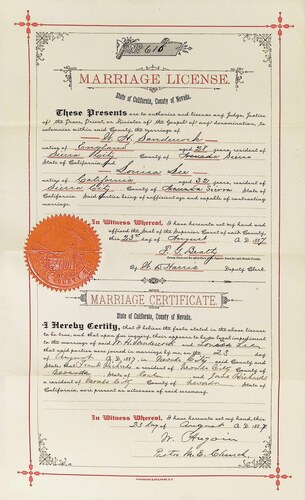 No 616
MARRIAGE LICENSE.
State of California, County of Nevada.
These Presents are to authorize and license any Judge, Justice
of the Peace, Priest, or Minister of the Gospel of any denomination, to
solemnize within said County, the marriage of
W. H.
native of England aged 28 years, resident of
Sierra City County of Sierra
State of California and
Louisa
native of California aged 32 years, resident of
Sierra City County of Sierra State of
California. Said parties being of sufficient age and capable of contracting
marriage.
In Witness Whereof, I have hereunto set my hand and
affixed the Seal of the Superior Court of said County,
this 23rd day of August A. D. 1887.
F. G. Beatty
By Harris Deputy Clerk.
MARRIAGE CERTIFICATE.
State of California, County of Nevada.
I Hereby Certify, that I believe the facts stated in the above license
to be true, and that upon due inquiry there appears to be no legal impediment
to the marriage of said
that said parties were joined in marriage by me, on the 23 day
of August A. D. 1887, in Nevada City County and
State; that Frank a resident of Nevada City County of
Nevada State of and
a resident of Nevada City County of Nevada State of
California, were present as witnesses of said ceremony.
In Witness Whereof, I have hereunto set my hand, this
23 day of August A. D. 1887.
W.
Pastor M. E. Church.